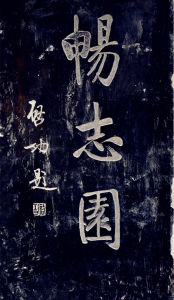 暢志園
啟功題